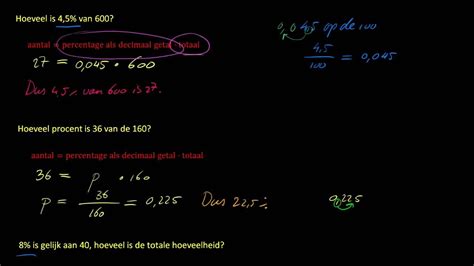 Hoeveel is 4,5% van 600?
0,045 op de 100
aantal = percentage als decimaal getal · totaal
4,5/100 = 0,045
27 = 0,045 · 600
Dus 4,5% van 600 is 27.
Hoeveel procent is 36 van de 160?
aantal = percentage als decimaal getal · totaal
36 = p · 160
p = 36/160 = 0,225 Dus 22,5% 0,225
8% is gelijk aan 40, hoeveel is de totale hoeveelheid?